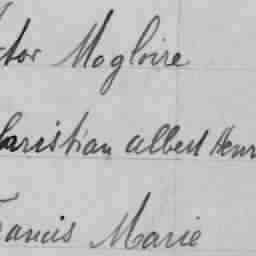 ctor Magloire
Christian Albert Henri
Francis Marie